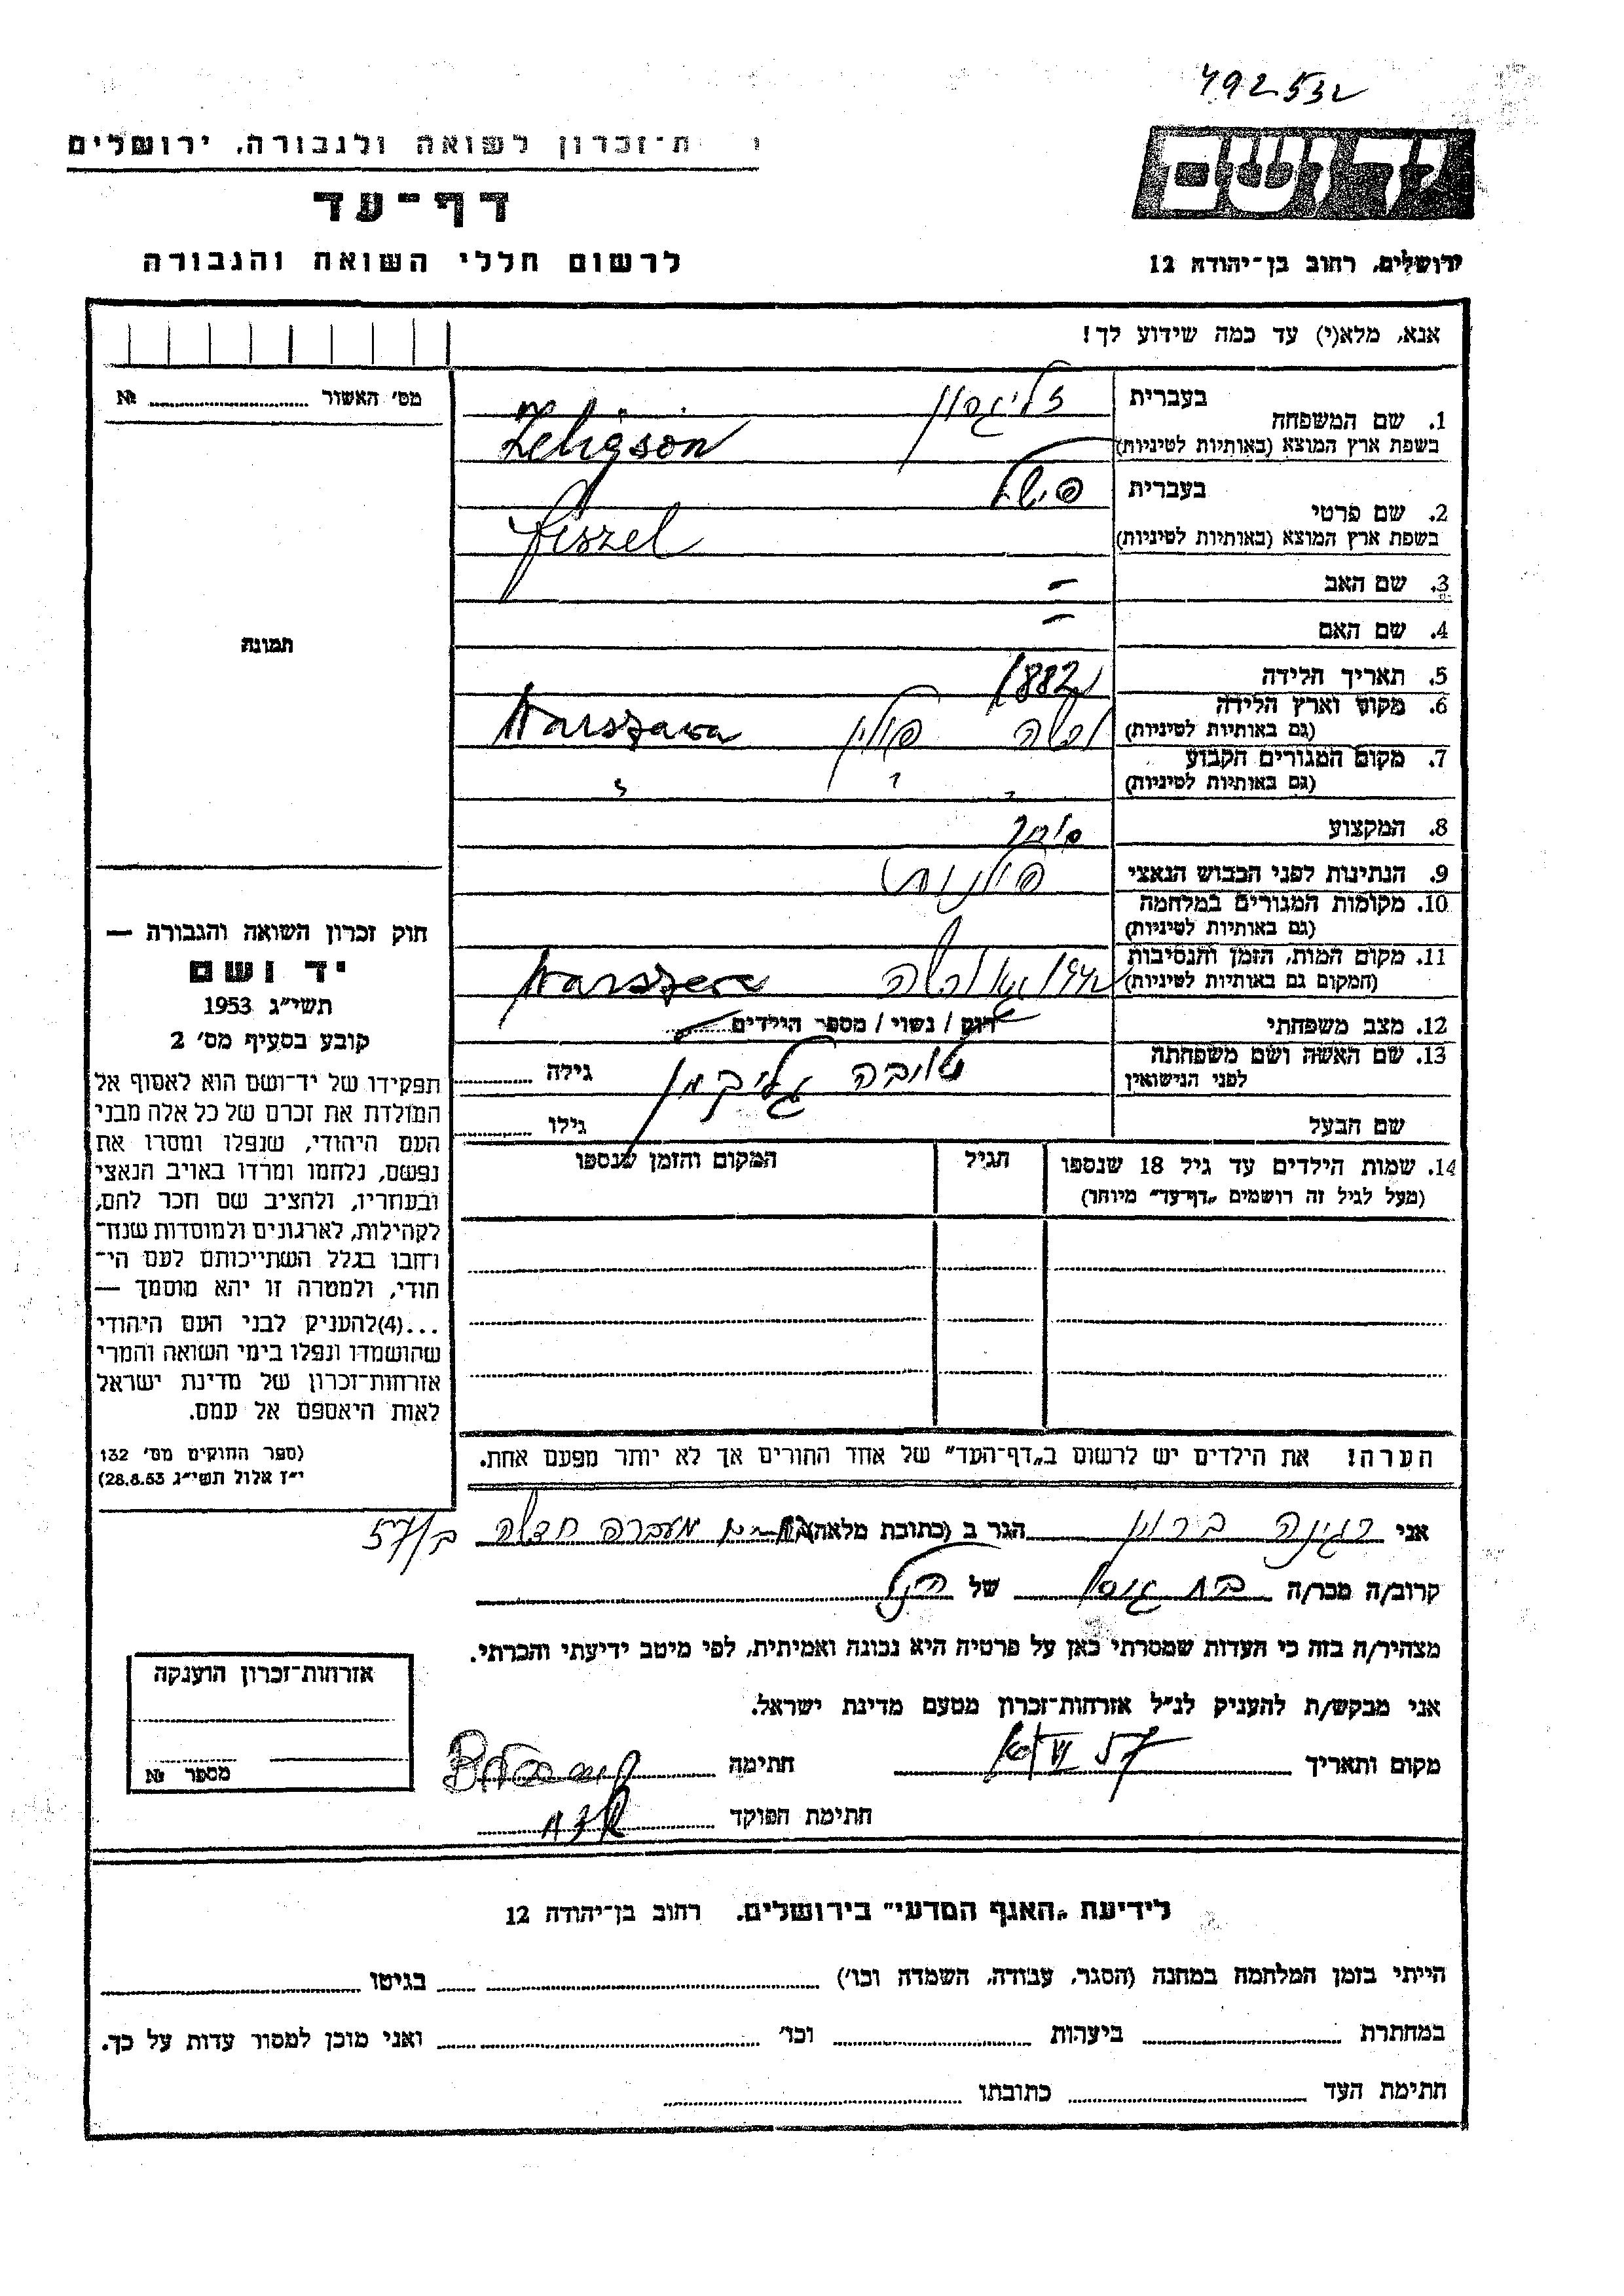 492532
ת-זכרון לשואה ולגבורה, ירושלים
דף-עד
לרשום חללי השואה והגבורה
יד ושם
ירושלים, רחוב בן-יהודה 12
אנא, מלא(י) עד כמה שידוע לך!
מס' האשור № 
1. שם המשפחה בעברית זליגסון
בשפת ארץ המוצא (באותיות לטיניות) Zeligson
2. שם פרטי בעברית פישל
בשפת ארץ המוצא (באותיות לטיניות) Fiszel
3. שם האב –
4. שם האם –
5. תאריך הלידה 1882
6. מקום וארץ הלידה (גם באותיות לטיניות) ורשה פולין Warszawa
7. מקום המגורים הקבוע (גם באותיות לטיניות) " " "
8. המקצוע סוחר
9. הנתינות לפני הכבוש הנאצי פולנית
10. מקומות המגורים במלחמה (גם באותיות לטיניות)
11. מקום המות, הזמן והנסיבות (המקום גם באותיות לטיניות) ורשה
12. מצב משפחתי רווק / נשוי / מספר הילדים
13. שם האשה ושם משפחתה לפני הנישואין טובה גליקמן גילה
שם הבעל גילו
14. שמות הילדים עד גיל 18 שנספו הגיל המקום והזמן שנספו
(מעל לגיל זה רושמים „דף-עד" מיוחד)
הערה! את הילדים יש לרשום ב„דף-העד" של אחד ההורים אך לא יותר מפעם אחת.
תמונה
חוק זכרון השואה והגבורה —
יד ושם
תשי"ג 1953
קובע בסעיף מס' 2
תפקידו של יד-ושם הוא לאסוף אל
המולדת את זכרם של כל אלה מבני
העם היהודי, שנפלו ומסרו את
נפשם, נלחמו ומרדו באויב הנאצי
ובעוזריו, ולהציב שם וזכר להם,
לקהילות, לארגונים ולמוסדות שנח־
רחבו בגלל השתייכותם לעם הי־
הודי, ולמטרה זו יהא מוסמך —
...(4)להעניק לבני העם היהודי
שהושמדו ונפלו בימי השואה והמרי
אזרחות-זכרון של מדינת ישראל
לאות היאספם אל עמם.
(ספר החוקים מס' 132
י"ז אלול תשי"ג 28.8.53)
אני רגינה ברוין הגר ב (כתובת מלאה) מעברה חדשה ב/57
קרוב/ה מכר/ה בת גיסו של הנ"ל
מצהיר/ה בזה כי העדות שמסרתי כאן על פרטיה היא נכונה ואמיתית, לפי מיטב ידיעתי והכרתי.
אני מבקש/ת להעניק לנ"ל אזרחות-זכרון מטעם מדינת ישראל.
מקום ותאריך VI 57 חתימה
חתימת הפוקד
אזרחות-זכרון הוענקה
מספר №
לידיעת „האגף המדעי" בירושלים, רחוב בן-יהודה 12
הייתי בזמן המלחמה במחנה (הסגר, עבודה, השמדה וכו') בגיטו
במחתרת ביערות וכו' ואני מוכן למסור עדות על כך.
חתימת העד כתובתו